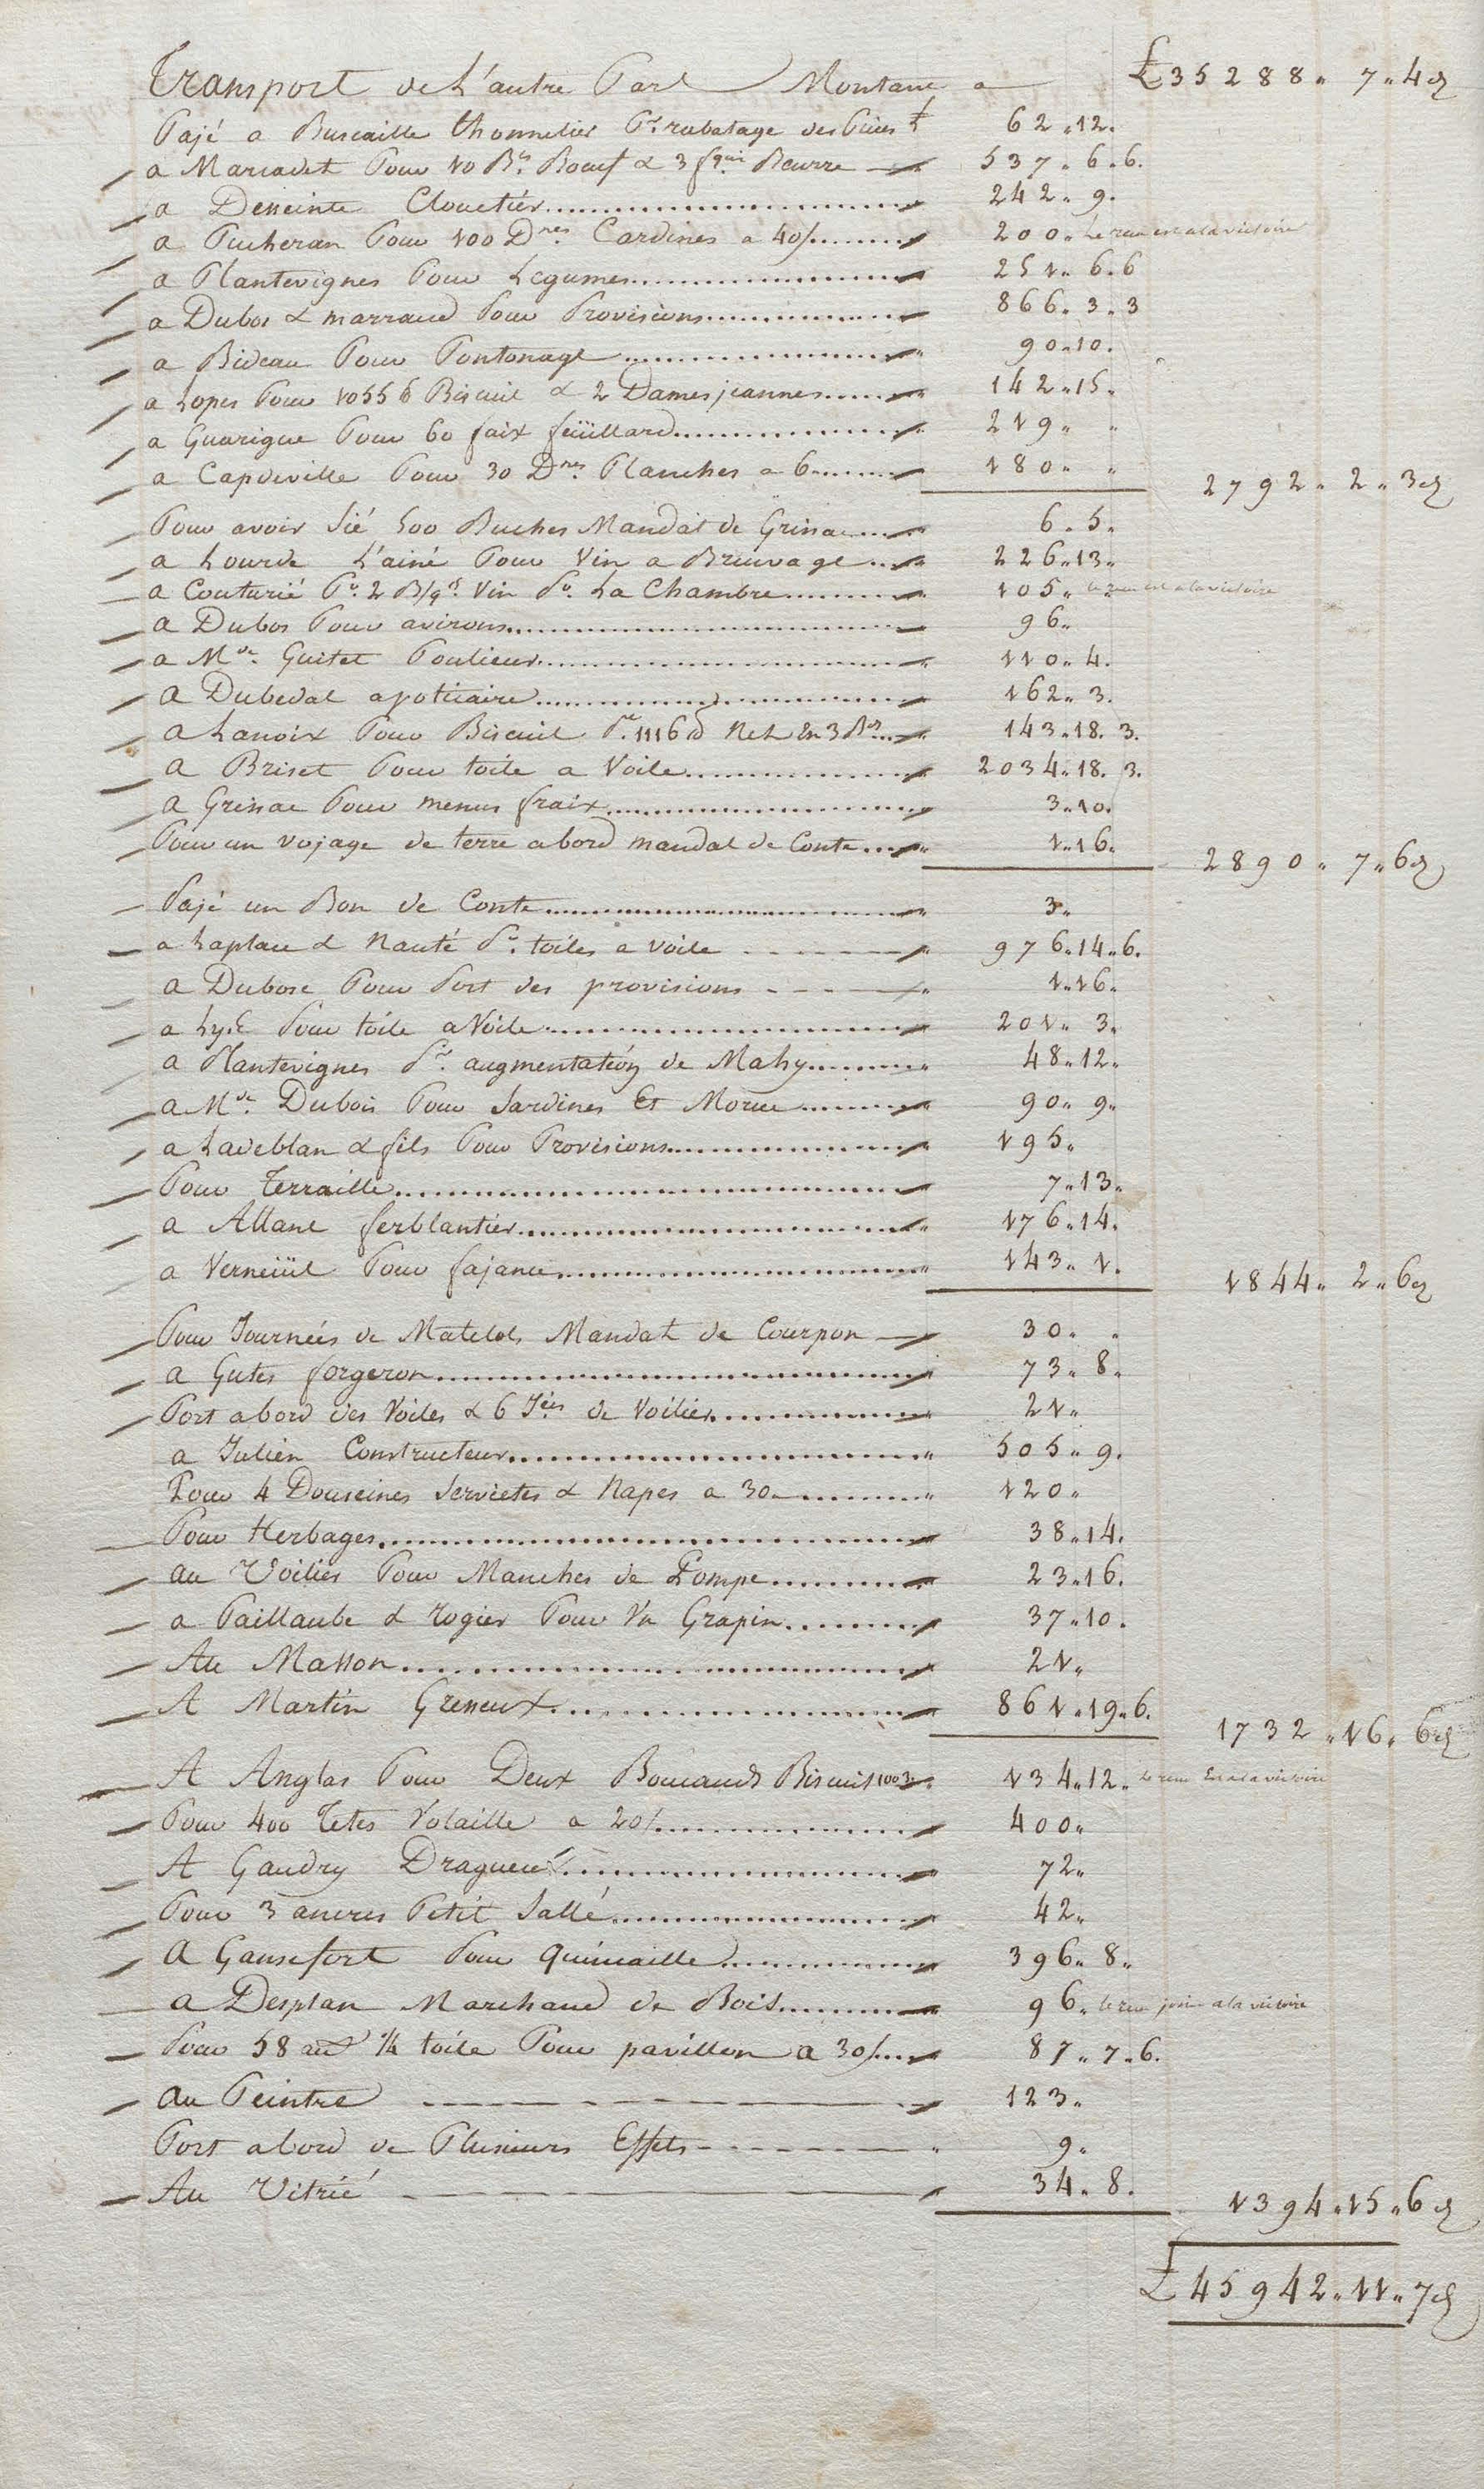 Transport de L'autre Part Montant a £35288" 7"4d
Pajé a Buscaille thonnelier Pr. rabatage des Pieces £ 62"12"
a Marcadet Pour 10 Bls. Boeuf & 3 fqns Beurre 537" 6"6.
a Desseinte Cloutier 242" 9"
a Pucheran Pour 100 Dnes. Cardines a 40/ 200" Le recu est a la victoire
a Plantevignes Pour Legumes 251" 6"6
a Dubos & marraud Pour Provisions 866" 3"3
a Bideau Pour Pontonage 90"10"
a Lopes Pour 1055 lb Biscuit & 2 Damesjeannes 142"15"
a Guarigue Pour 60 faix feüillard 219" "
a Capdeville Pour 30 Dnes. Planches a 6 180" " 2792" 2"3d
Pour avoir Sié 500 Buches Mandat de Grissac 6"5"
a Lourde L'ainé Pour Vin a Breuvage 226"13"
a Couturié Pr. 2 B/qs. Vin Pr. La Chambre 105" le recu est a la victoire
a Dubos Pour avirons 96"
a Mde. Guitet Poulieur 110"4.
a Dubedat apoticaire 162"3.
a Lanoix Pour Biscuit Pr. 1116 lb Net En 3 Bds 143"18.3.
a Briset Pour toile a Voile 2034"18.3.
a Grissac Pour menus fraix 3"10"
Pour un vojage de terre abord mandat de Conte 1"16" 2890" 7"6d
Pajé un Bon de Conte 3"
a Laplace & Nauté Pr. toiles a voile 976"14"6.
a Dubosc Pour Port des provisions 1"16"
a Lys Pour toile a Voile 201"3"
a Plantevignes Pr. augmentation de Mahy 48"12"
a Mde. Dubois Pour Sardines Et Morue 90"9"
a Ladeblan & fils Pour Provisions 195"
Pour Terraille 7"13"
a Allane ferblantier 176"14.
a Verneüil Pour fajance 143"1. 1844" 2"6d
Pour Journées de Matelots Mandat de Courpon 30" "
a Gutes forgeron 73"8"
Port abord des Voiles & 6 Jées de Voilier 21"
a Julien Constructeur 505"9.
Pour 4 Douseines Servietes & Napes a 30 120"
Pour Herbages 38"14.
au Voilier Pour Manches de Pompe 23"16.
a Paillaube & Rogier Pour Un Grapin 37"10.
Au Masson 21"
A Martin Greneux 861"19"6. 1732"16"6d
A Anglas Pour Deux Boucauds Biscuit 1003 134"12" Le recu Est a la victoire
Pour 400 Tetes Volaille a 20/ 400"
A Gaudry Dragueur 72"
Pour 3 ancres Petit Sallé 42"
A Gansefort Pour quincaille 396"8"
a Desplan Marchand de Bois 96" le recu joint a la victoire
Pour 58 aus 1/4 toile Pour pavillon a 30/ 87"7"6.
au Peintre 123"
Port abord de Plusieurs Effets 9"
Au Vitrié 34"8. 1394"15"6d
£45942"11"7d